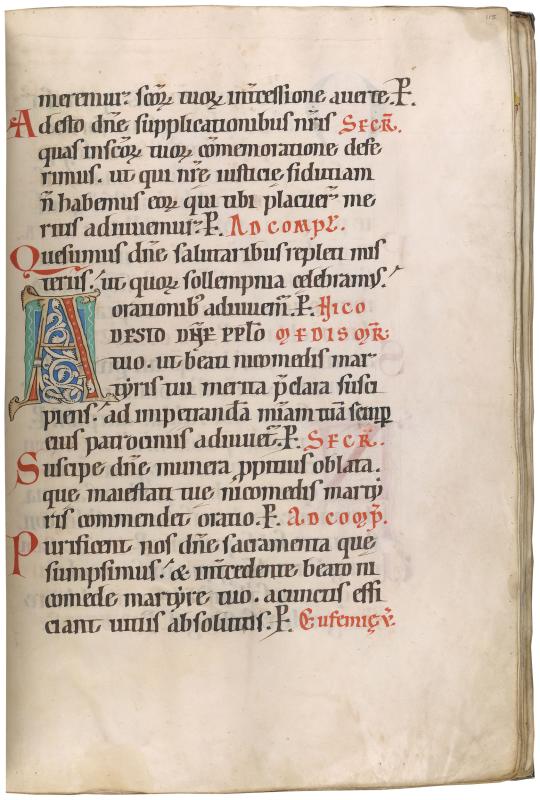 115
meremur. scoꝝ tuoꝝ int̄cessione auerte. P̄.
Adesto dn̄e supplicationibus nr̄is SECR̄.
quas in scoꝝ tuoꝝ cōmemoratione defe
rimus. ut qui nr̄e iusticie fiduciam
n̄ habemus eoꝝ qui tibi placuer̄ me
ritis adiuuemur. P̄. AD COMPL̄.
Quesumus dn̄e salutaribus repleti mis
teriis. ut quoꝝ sollempnia celebramꝰ.
orationibꝰ adiuuem̄. P̄. NICO
ADESTO DN̄E PPL̄O MEDIS MR̄.
tuo. ut beati nicomedis mar
tẏris tui merita p̄clara susci
piens. ad impetrandā mīam tuā semꝑ
eius patrociniis adiuuet̄. P̄. SECR̄.
Suscipe dn̄e munera ꝓpitius oblata.
que maiestati tue nicomedis martẏ
ris commendet oratio. P̄. AD COMP̄.
Purificent nos dn̄e sacramenta que
sumpsimus. & int̄cedente beato ni
comede martẏre tuo. a cunctis effi
ciant uitiis absolutos. P̄. Eufemię v̄.